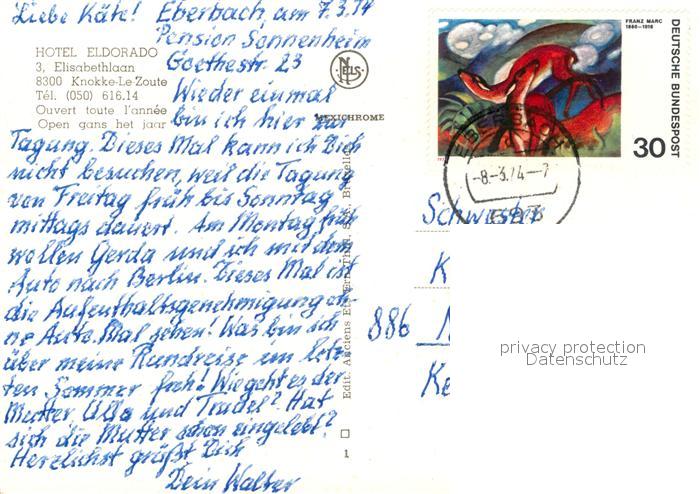 Liebe Käte! Eberbach, am 7.3.74
Pension Sonnenheim
Goethestr. 23
HOTEL ELDORADO
3, Elisabethlaan
8300 Knokke-Le-Zoute
Tél. (050) 616.14
Ouvert toute l'année
Open gans het jaar
NELS
MEXICHROME
Wieder einmal
bin ich hier zur
Tagung. Dieses Mal kann ich Dich
nicht besuchen, weil die Tagung
von Freitag früh bis Sonntag
mittags dauert. Am Montag früh
wollen Gerda und ich mit dem
Auto nach Berlin. Dieses Mal ist
die Aufenthaltsgenehmigung oh-
ne Auto. Mal sehen! Was bin ich
über meine Rundreise im letz-
ten Sommer froh! Wie geht es der
Mutter, Ulla und Trudel? Hat
sich die Mutter schon eingelebt?
Herzlichst grüßt Dich
Dein Walter
Edit. Anciens Etabl. Thill, S.A. Bruxelles
1
FRANZ MARC
1880-1916
DEUTSCHE BUNDESPOST
30
-8.-3.74-7
693
Schwester
K
886
Ke
privacy protection
Datenschutz